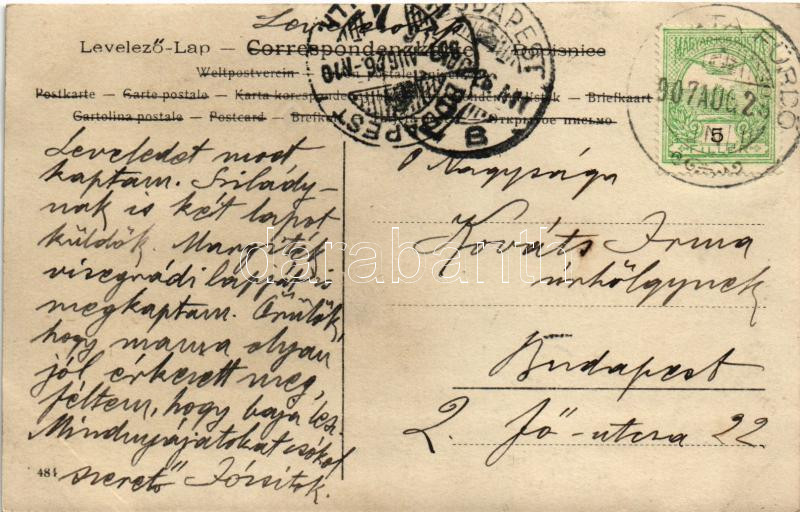 Levelező-Lap — Correspondenzkarte — Dopisnice
Weltpostverein —
Postkarte — Carte postale — Karta korespondencyjna — Briefkaart
Cartolina postale — Postcard — Открытое письмо
BUDAPEST
BUDAPEST
8
FÜRDŐ
907 AUG 25
MAGYAR KIR. POSTA
5
FILLÉR
Leveledet most
kaptam. Szilády-
nak is két lapot
küldök. Margiték
visegrádi lapját is
megkaptam. Örülök,
hogy mama olyan
jól érkezett meg,
féltem, hogy baja lesz.
Mindnyájatokat csókol
szerető Józsitok.
Ő Nagysága
Kováts Irma
úrhölgynek
Budapest
2. Fő-utcza 22.
484
darabanth